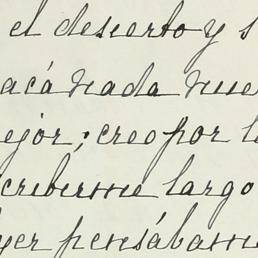 el desierto y s
acá nada nue
ejor; creo por l
cribirme largo
yer pensábam